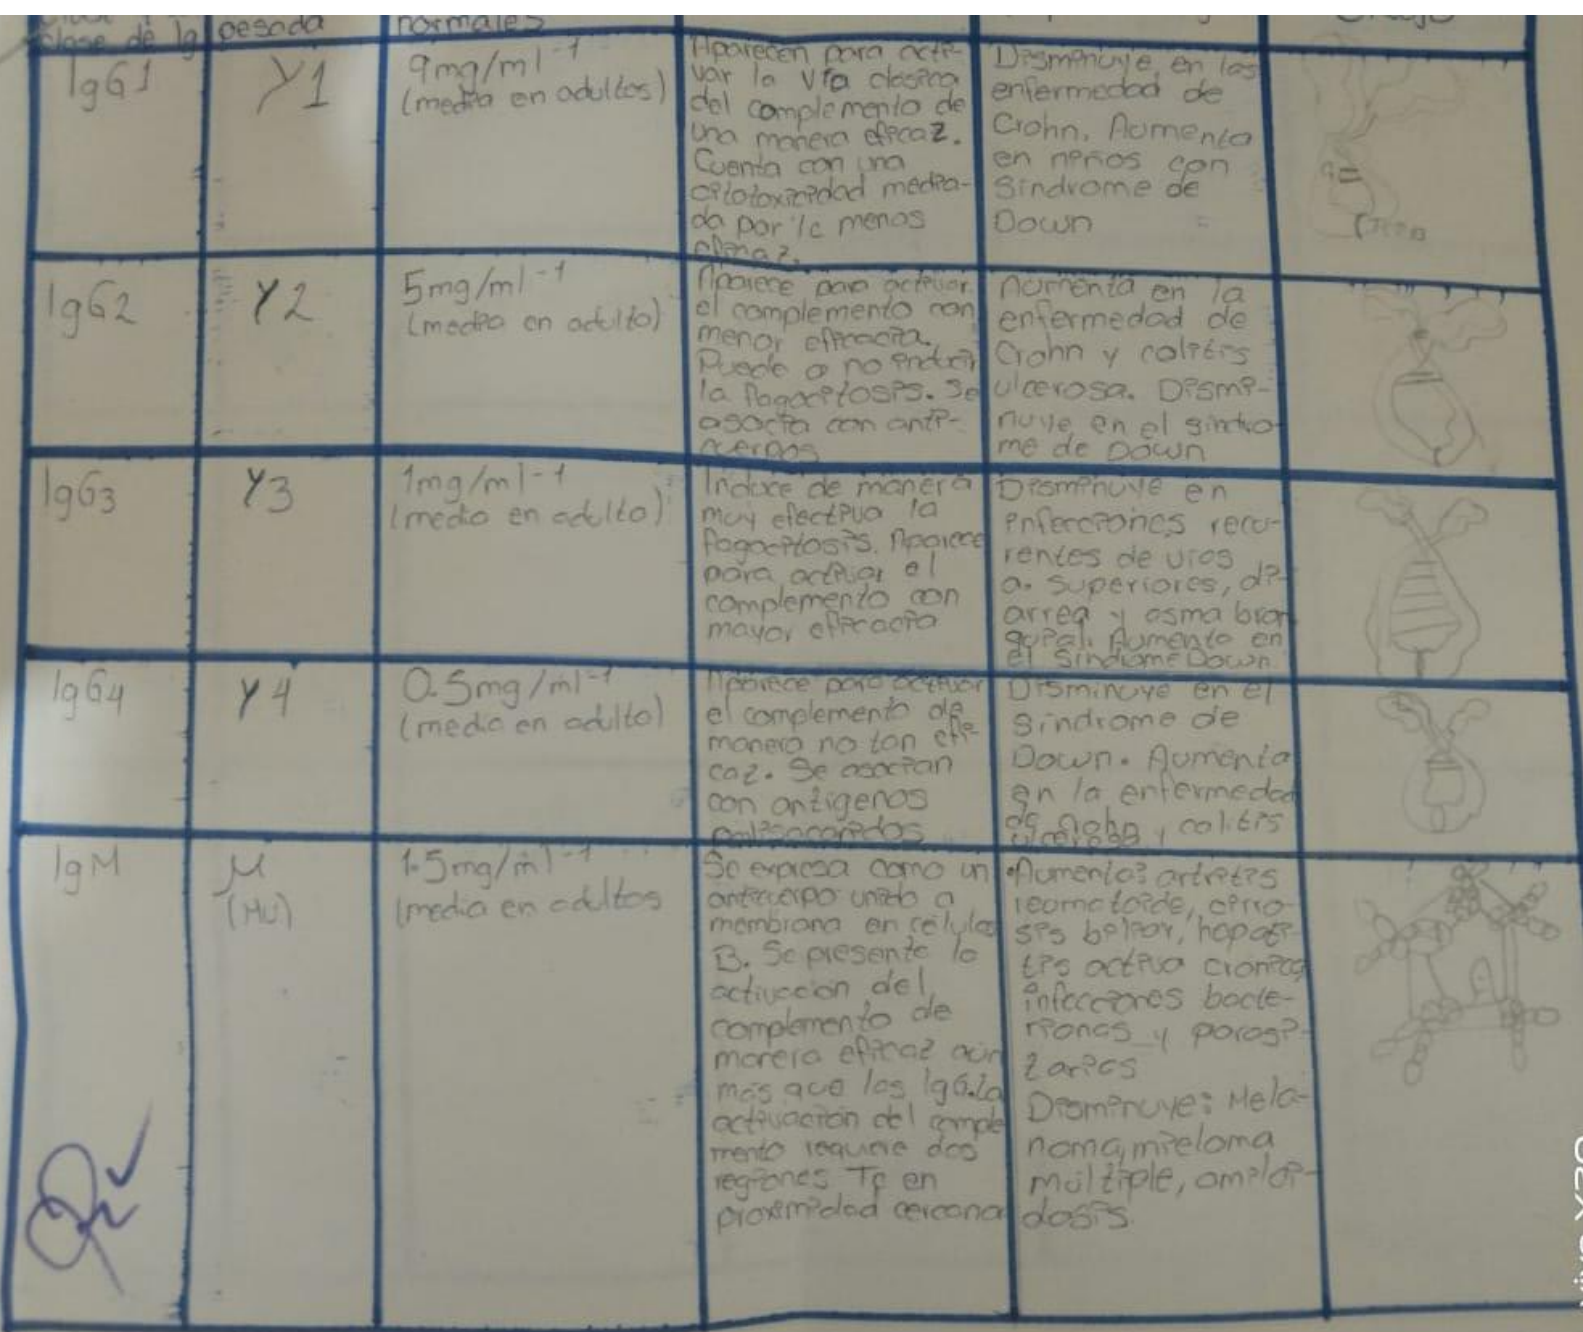 clase de Ig
pesada
normales
IgG1
γ1
9mg/ml⁻¹
(media en adultos)
Aparecen para acti-
var la vía clásica
del complemento de
una manera eficaz.
Cuenta con una
citotoxicidad media-
da por la menos
eficaz.
Disminuye en las
enfermedad de
Crohn. Aumenta
en niños con
Síndrome de
Down
IgG2
γ2
5mg/ml⁻¹
(media en adulto)
Aparece para activar
el complemento con
menor eficacia.
Puede o no inducir
la fagocitosis. Se
asocia con anti-
cuerpos
Aumenta en la
enfermedad de
Crohn y colitis
ulcerosa. Dismi-
nuye en el síndro-
me de Down
IgG3
γ3
1mg/ml⁻¹
(media en adulto)
Induce de manera
muy efectiva la
fagocitosis. Aparece
para activar el
complemento con
mayor eficacia
Disminuye en
infecciones recu-
rrentes de vías
a. superiores, di-
arrea y asma bron
quial. Aumento en
el Síndrome Down
IgG4
γ4
0.5mg/ml⁻¹
(media en adulto)
Aparece para activar
el complemento de
manera no tan efi-
caz. Se asocian
con antígenos
polisacaridos
Disminuye en el
síndrome de
Down. Aumenta
en la enfermedad
de Crohn y colitis
ulcerosa
IgM
μ
(MU)
1.5mg/ml⁻¹
(media en adultos
Se expresa como un
anticuerpo unido a
membrana en células
B. Se presente la
activacion del
complemento de
manera eficaz aún
más que las IgG. La
activación del comple
mento requiere dos
regiones en
proximidad cercana
•Aumento: artritis
reumatoide, cirro-
sis biliar, hepati-
tis activa cronica,
infecciones bacte-
rianas y parasi-
tarias
Disminuye: Mela-
noma, mieloma
múltiple, amiloi-
dosis.
vivo Y20